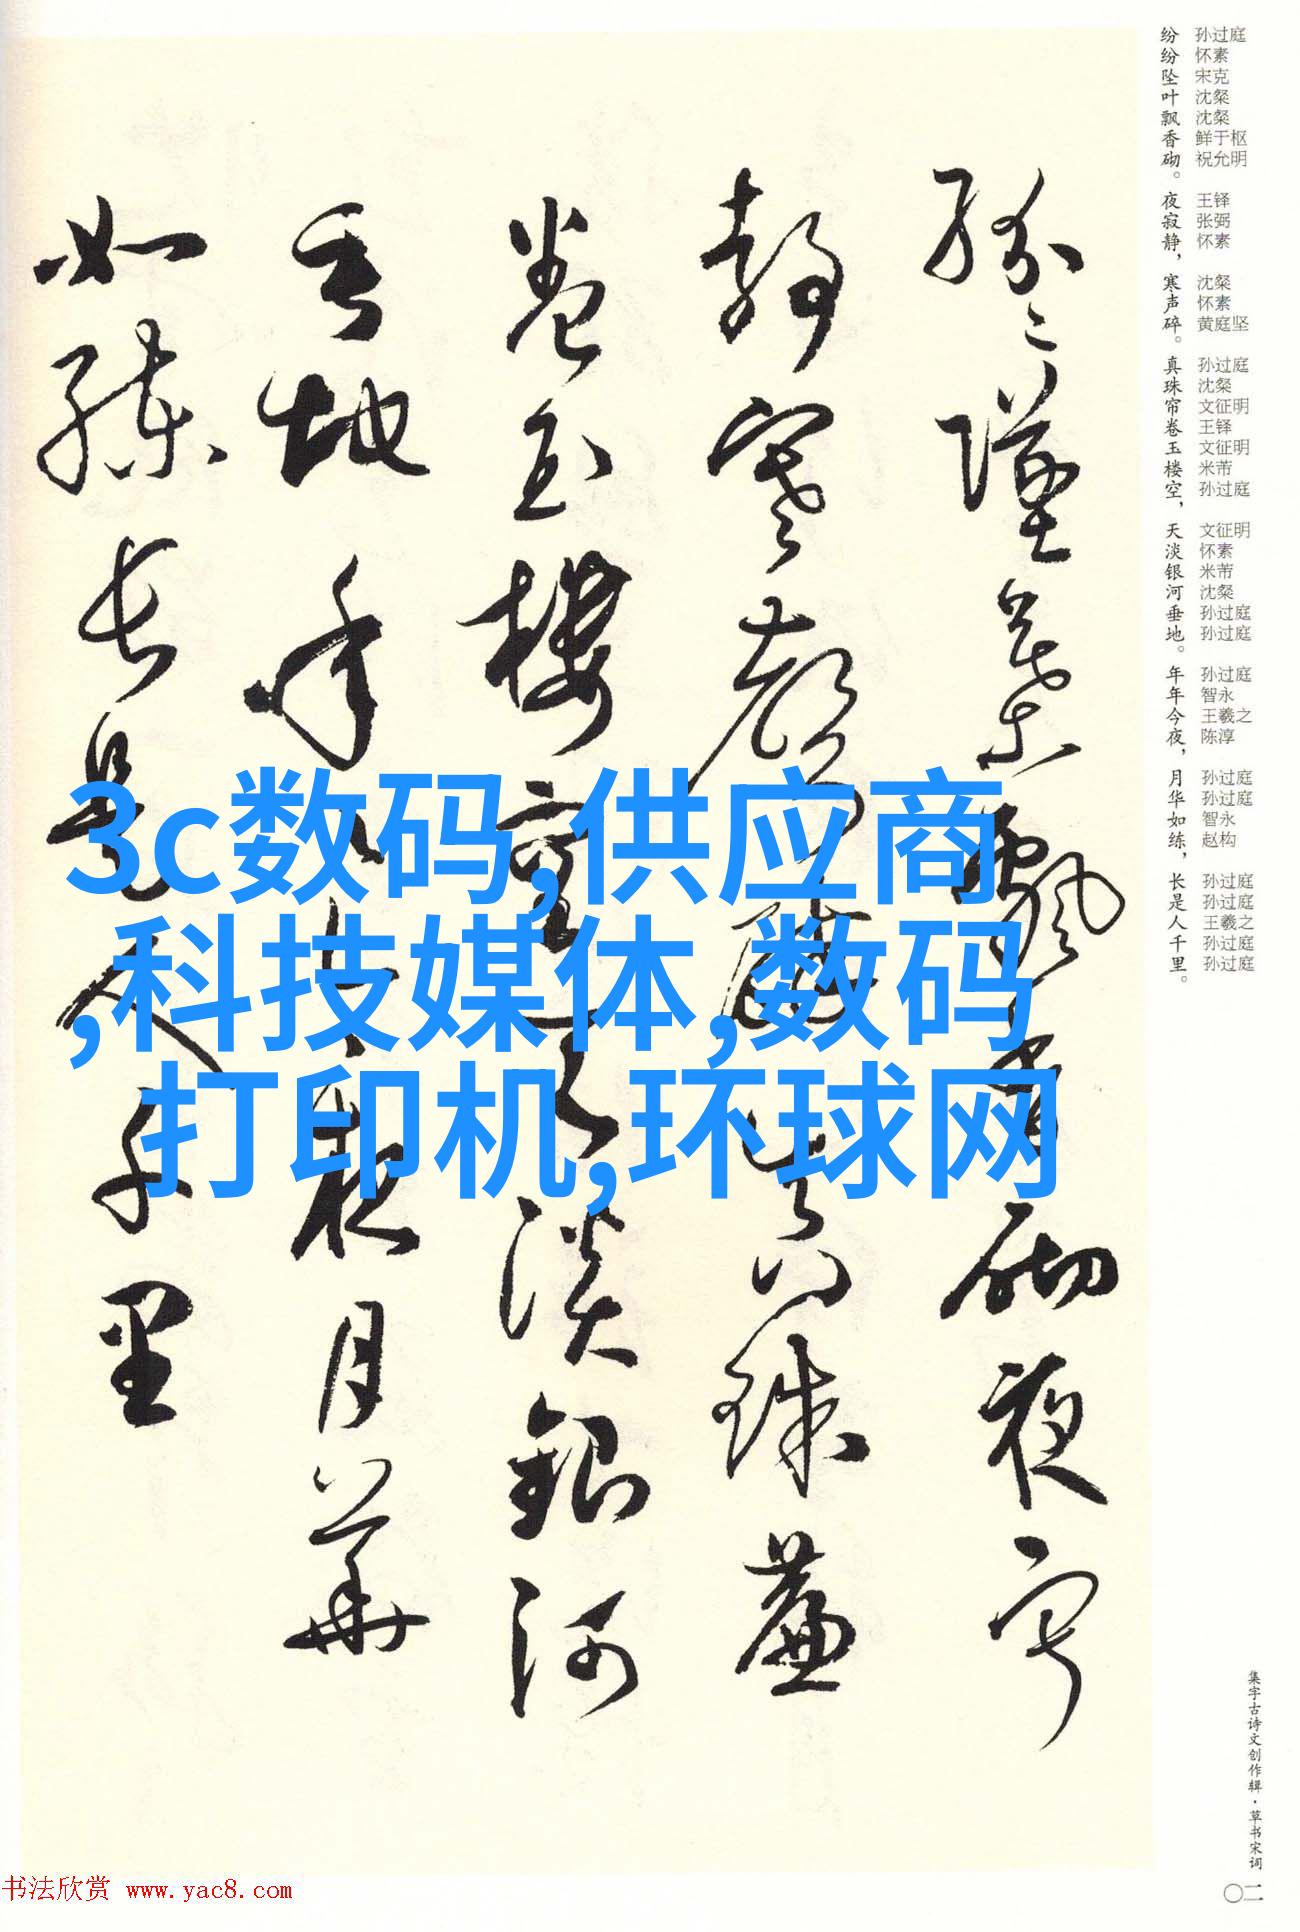 纷 孙过庭
纷 怀素
坠 宋克
叶 沈粲
飘 沈粲
香 鲜于枢
砌。 祝允明
夜 王铎
寂 张弼
静， 怀素
寒 沈粲
声 怀素
碎。 黄庭坚
真 孙过庭
珠 沈粲
帘 文征明
卷 王铎
玉 文征明
楼 米芾
空， 孙过庭
天 文征明
淡 怀素
银 米芾
河 沈粲
垂 孙过庭
地。 孙过庭
年 孙过庭
年 智永
今 王羲之
夜， 陈淳
月 孙过庭
华 孙过庭
如 智永
练， 赵构
长 孙过庭
是 孙过庭
人 王羲之
千 孙过庭
里。 孙过庭
紛〻墜葉飄香砌夜寂
静寒聲碎真珠簾
卷玉樓空天淡銀河
垂地年〻今夜月華
如練長是人千里
3c数码,供应商
,科技媒体,数码
,打印机,环球网
集字古诗文创作辑·草书宋词
〇二
书法欣赏 www.yac8.com